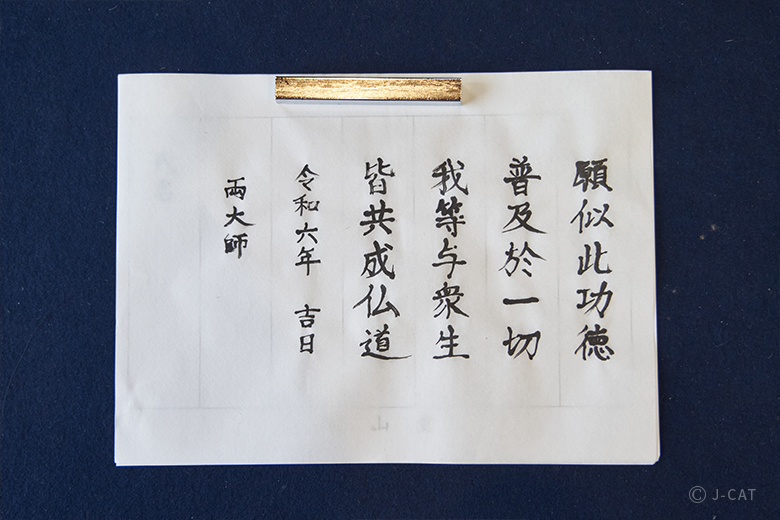 願似此功徳
普及於一切
我等与衆生
皆共成仏道
令和六年 吉日
両大師
© J-CAT